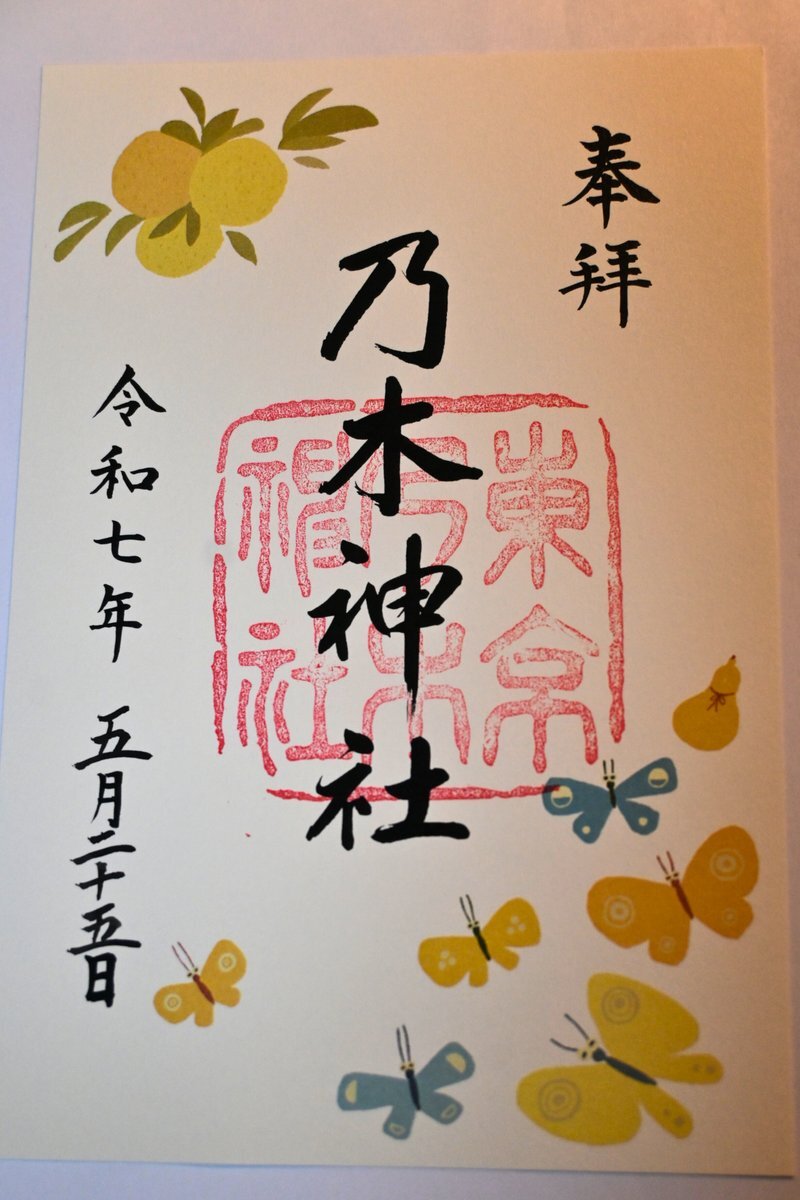 奉拝
乃木神社
東京
乃木
神社
令和七年 五月二十五日